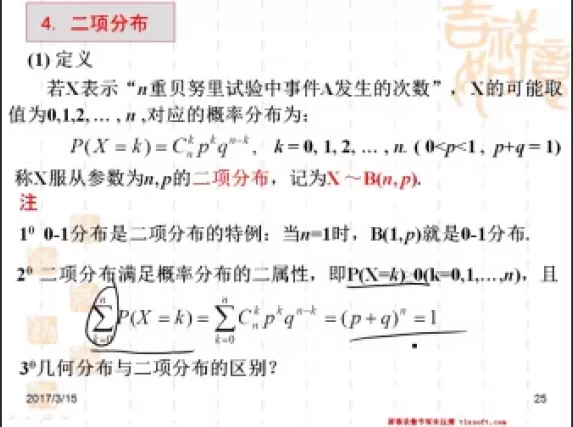 4. 二项分布
(1) 定义
若X表示“n重贝努里试验中事件A发生的次数”，X的可能取
值为0,1,2, … , n ,对应的概率分布为：
P(X = k) = C_n^k p^k q^{n-k}, k = 0, 1, 2, … , n. ( 0<p<1 , p+q = 1)
称X服从参数为n,p的二项分布，记为X ～B(n, p).
注
1⁰ 0-1分布是二项分布的特例：当n=1时，B(1,p)就是0-1分布.
2⁰ 二项分布满足概率分布的二属性，即P(X=k) 0(k=0,1,…,n)，且
∑_{k=0}^{n} P(X = k) = ∑_{k=0}^{n} C_n^k p^k q^{n-k} = (p + q)^n = 1
3⁰几何分布与二项分布的区别？
2017/3/15
25